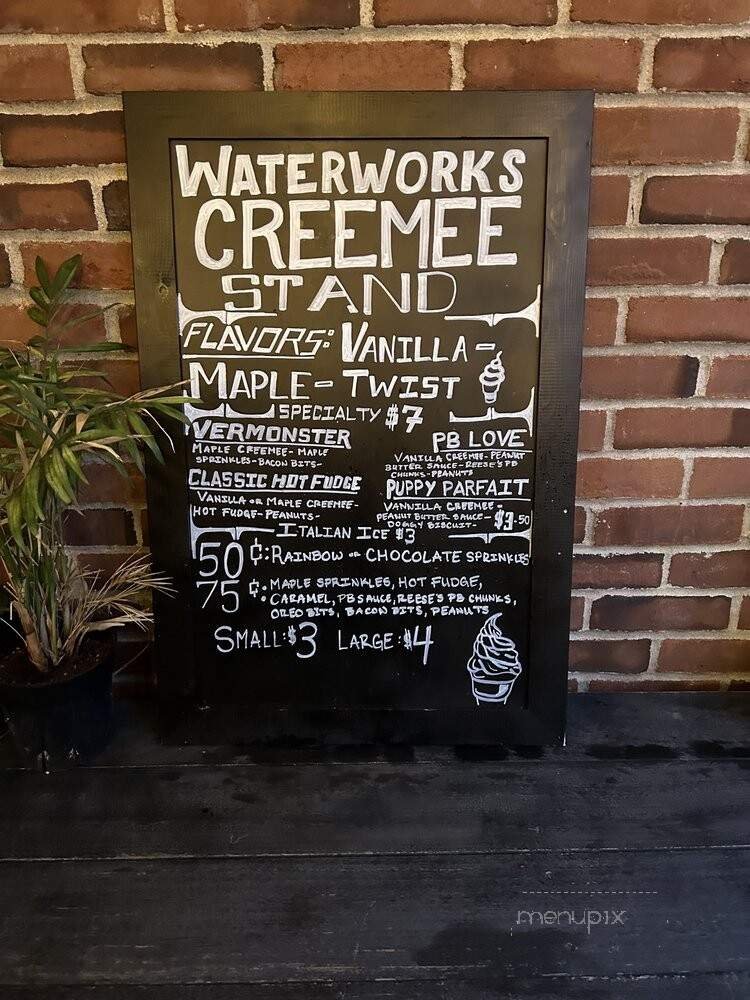 WATERWORKS
CREEMEE
STAND
FLAVORS: VANILLA -
MAPLE - TWIST
SPECIALTY $7
VERMONSTER
MAPLE CREEMEE - MAPLE
SPRINKLES - BACON BITS -
CLASSIC HOT FUDGE
VANILLA OR MAPLE CREEMEE -
HOT FUDGE - PEANUTS -
PB LOVE
VANILLA CREEMEE - PEANUT
BUTTER SAUCE - REESE'S PB
CHUNKS - PEANUTS
PUPPY PARFAIT
VANNUILLA CREEMEE -
PEANUT BUTTER SAUCE -
DOGGY BISCUIT - $3.50
ITALIAN ICE $3
50 ¢: RAINBOW OR CHOCOLATE SPRINKLES
75 ¢: MAPLE SPRINKLES, HOT FUDGE,
CARAMEL, PB SAUCE, REESE'S PB CHUNKS,
OREO BITS, BACON BITS, PEANUTS
SMALL: $3 LARGE: $4
menupix